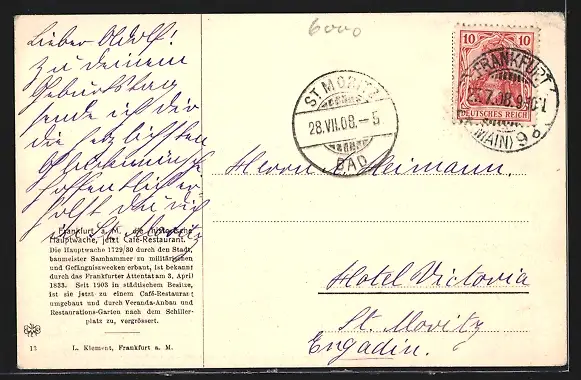 6000
Lieber Adolf!
Zu deinem
Geburtstag
sende ich dir
die herzlichsten
Glückwünsche
hoffentlich er-
holst du dich
in St. Moritz
Frankfurt a. M., die historische
Hauptwache, jetzt Café-Restaurant.
Die Hauptwache 1729/30 durch den Stadt-
baumeister Samhammer zu militärischen
und Gefängniszwecken erbaut, ist bekannt
durch das Frankfurter Attentat am 3. April
1833. Seit 1903 in städtischem Besitze,
ist sie jetzt zu einem Café-Restaurant
umgebaut und durch Veranda-Anbau und
Restaurations-Garten nach dem Schiller-
platz zu, vergrössert.
13 L. Klement, Frankfurt a. M.
ST. MORITZ
28.VII.08.-5
BAD
10 10
DEUTSCHES REICH
FRANKFURT
7.08.9-10
(MAIN) 9
Herrn Heimann.
Hotel Victoria
St. Moritz
Engadin.